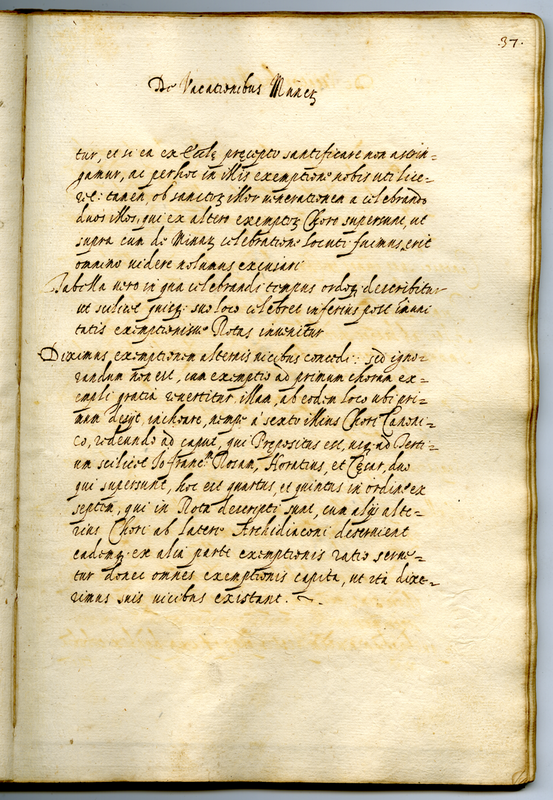 .37.
De Vacationibus Munerꝫ
tur, et si ea ex Ecclę pręcepto santificare non astrin=
gamur, ac per hoc in illis exemptione nobis uti lice=
ret: tamen, ob sanctoꝝ illoꝝ venerationem a celebrando
duos illos, qui ex altero exemptoꝝ Choro supersunt, ut
supra cum de Minaꝝ celebratione locuti fuimus, erit
omnino videre nolumus excusari
Tabella vero in qua celebrandi tempus ordoqꝫ describitur
ut scilicet quisqꝫ suo loco celebret inferius post
tatis exemptionisue Notas invenitur
Diximus exemptionem alternis vicibus concedi: sed igno=
randum non est, cum exemptio ad primum chorum ex=
empli gratia revertitur illam, ab eodem loco ubi pri=
mum desijt, inchoare, nempe a sexto illius Chori Canoni=
co, redeundo ad caput, qui Prepositus est, usqꝫ ad Terti=
um scilicet Io: Franc.m Rosam, Horatius, et Cęsar, duo
qui supersunt, hoc est quartus, et quintus in ordine ex
septem, qui in Rota descripti sunt, cum alijs alte=
rius Chori ab latere Archidiaconi deseruient
eademqꝫ ex alia parte exemptionis ratio serue=
tur donec omnes exemptionis capita, ut ita dixe=
rimus suis vicibus existant.